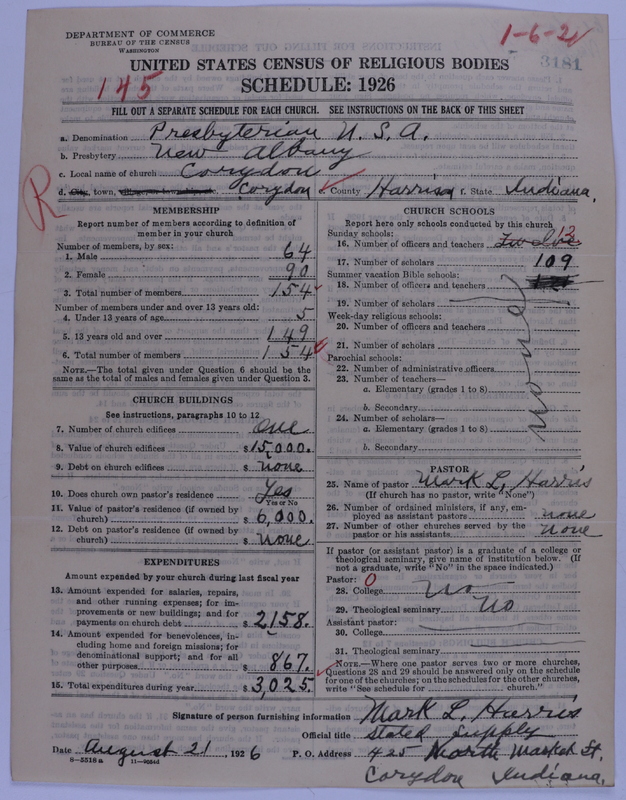 DEPARTMENT OF COMMERCE
BUREAU OF THE CENSUS
WASHINGTON
1-6-21
3181
UNITED STATES CENSUS OF RELIGIOUS BODIES
145
SCHEDULE: 1926
FILL OUT A SEPARATE SCHEDULE FOR EACH CHURCH. SEE INSTRUCTIONS ON THE BACK OF THIS SHEET
a. Denomination Presbyterian U. S. A.
b. Presbytery New Albany
c. Local name of church Corydon
R
d. City, town, Corydon e. County Harrison f. State Indiana.
MEMBERSHIP
Report number of members according to definition of
member in your church
Number of members, by sex:
1. Male 64
2. Female 90
3. Total number of members 154
Number of members under and over 13 years old:
4. Under 13 years of age 5
5. 13 years old and over 149
6. Total number of members 154
NOTE.—The total given under Question 6 should be the
same as the total of males and females given under Question 3.
CHURCH BUILDINGS
See instructions, paragraphs 10 to 12
7. Number of church edifices one
8. Value of church edifices $15,000.
9. Debt on church edifices $ none
10. Does church own pastor's residence Yes
Yes or No
11. Value of pastor's residence (if owned by
church) $6,000.
12. Debt on pastor's residence (if owned by
church) $ none
EXPENDITURES
Amount expended by your church during last fiscal year
13. Amount expended for salaries, repairs,
and other running expenses; for im-
provements or new buildings; and for
payments on church debt $2158.
14. Amount expended for benevolences, in-
cluding home and foreign missions; for
denominational support; and for all
other purposes $867.
15. Total expenditures during year $3,025.
CHURCH SCHOOLS
Report here only schools conducted by this church
Sunday schools:
16. Number of officers and teachers Twelve 12
17. Number of scholars 109
Summer vacation Bible schools:
18. Number of officers and teachers
19. Number of scholars
Week-day religious schools:
20. Number of officers and teachers
21. Number of scholars
Parochial schools:
22. Number of administrative officers
23. Number of teachers—
a. Elementary (grades 1 to 8)
b. Secondary
24. Number of scholars—
a. Elementary (grades 1 to 8)
b. Secondary
none
PASTOR
25. Name of pastor Mark L. Harris
(If church has no pastor, write "None")
26. Number of ordained ministers, if any, em-
ployed as assistant pastors none
27. Number of other churches served by the
pastor or his assistants None
If pastor (or assistant pastor) is a graduate of a college or
theological seminary, give name of institution below. (If
not a graduate, write "No" in the space indicated.)
Pastor: 0
28. College No
29. Theological seminary No
Assistant pastor:
30. College
31. Theological seminary
NOTE.—Where one pastor serves two or more churches,
Questions 28 and 29 should be answered only on the schedule
for one of the churches; on the schedules for the other churches,
write "See schedule for church."
Signature of person furnishing information Mark L. Harris
Official title Stated Supply
Date August 21, 1926 P. O. Address 425 North Market St.
8—5518 a 11—9054d
Corydon Indiana.